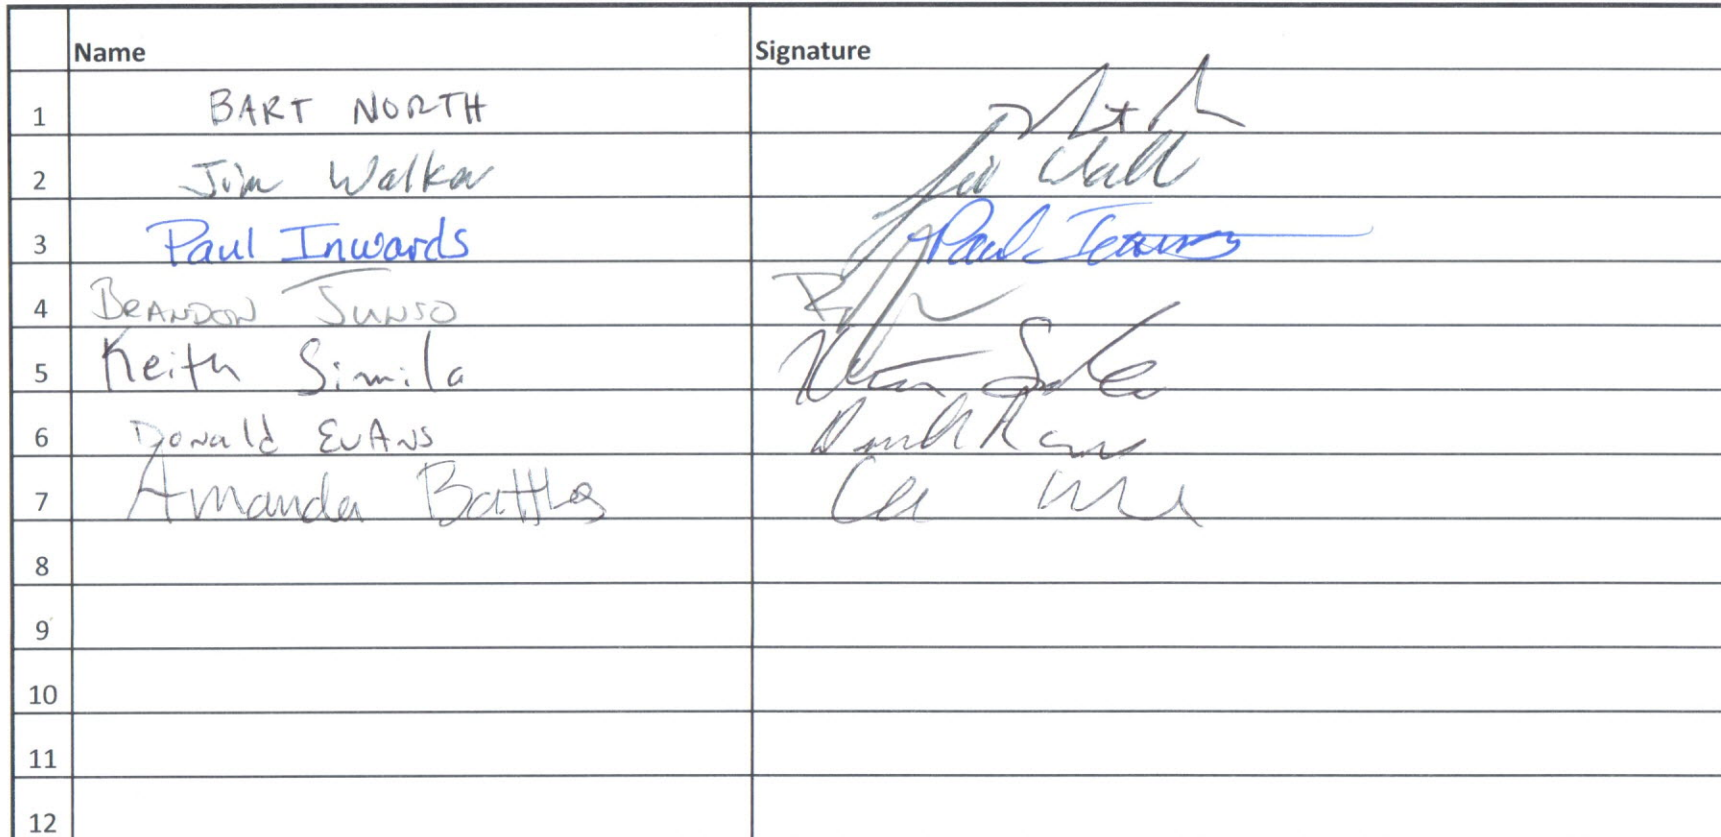 Name Signature
1 BART NORTH
2 Jim Walker
3 Paul Inwards Paul
4 BRANDON JUNSO
5 Keith Simila
6 Donald EVANS
7 Amanda Battles
8
9
10
11
12